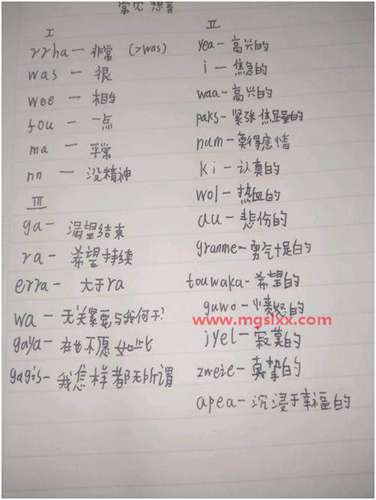 常见想音
I
rrha — 非常 (>was)
was — 很
wee — 相当
fou — 一点
ma — 平常
nn — 没精神
III
ga — 渴望结束
ra — 希望持续
erra — 大于ra
wa — 无关紧要与我何干?
gaya — 再也不愿如此
gagis — 我怎样都无所谓
II
yea — 高兴的
i — 焦急的
waa — 高兴的
paks — 紧张焦虑的
num — 莫得感情
ki — 认真的
wol — 热血的
au — 悲伤的
granme — 勇气十足的
touwaka — 希望的
guwo — 愤怒的
www.mgslxx.com
jyel — 寂寞的
zweie — 真挚的
apea — 沉浸于幸福的